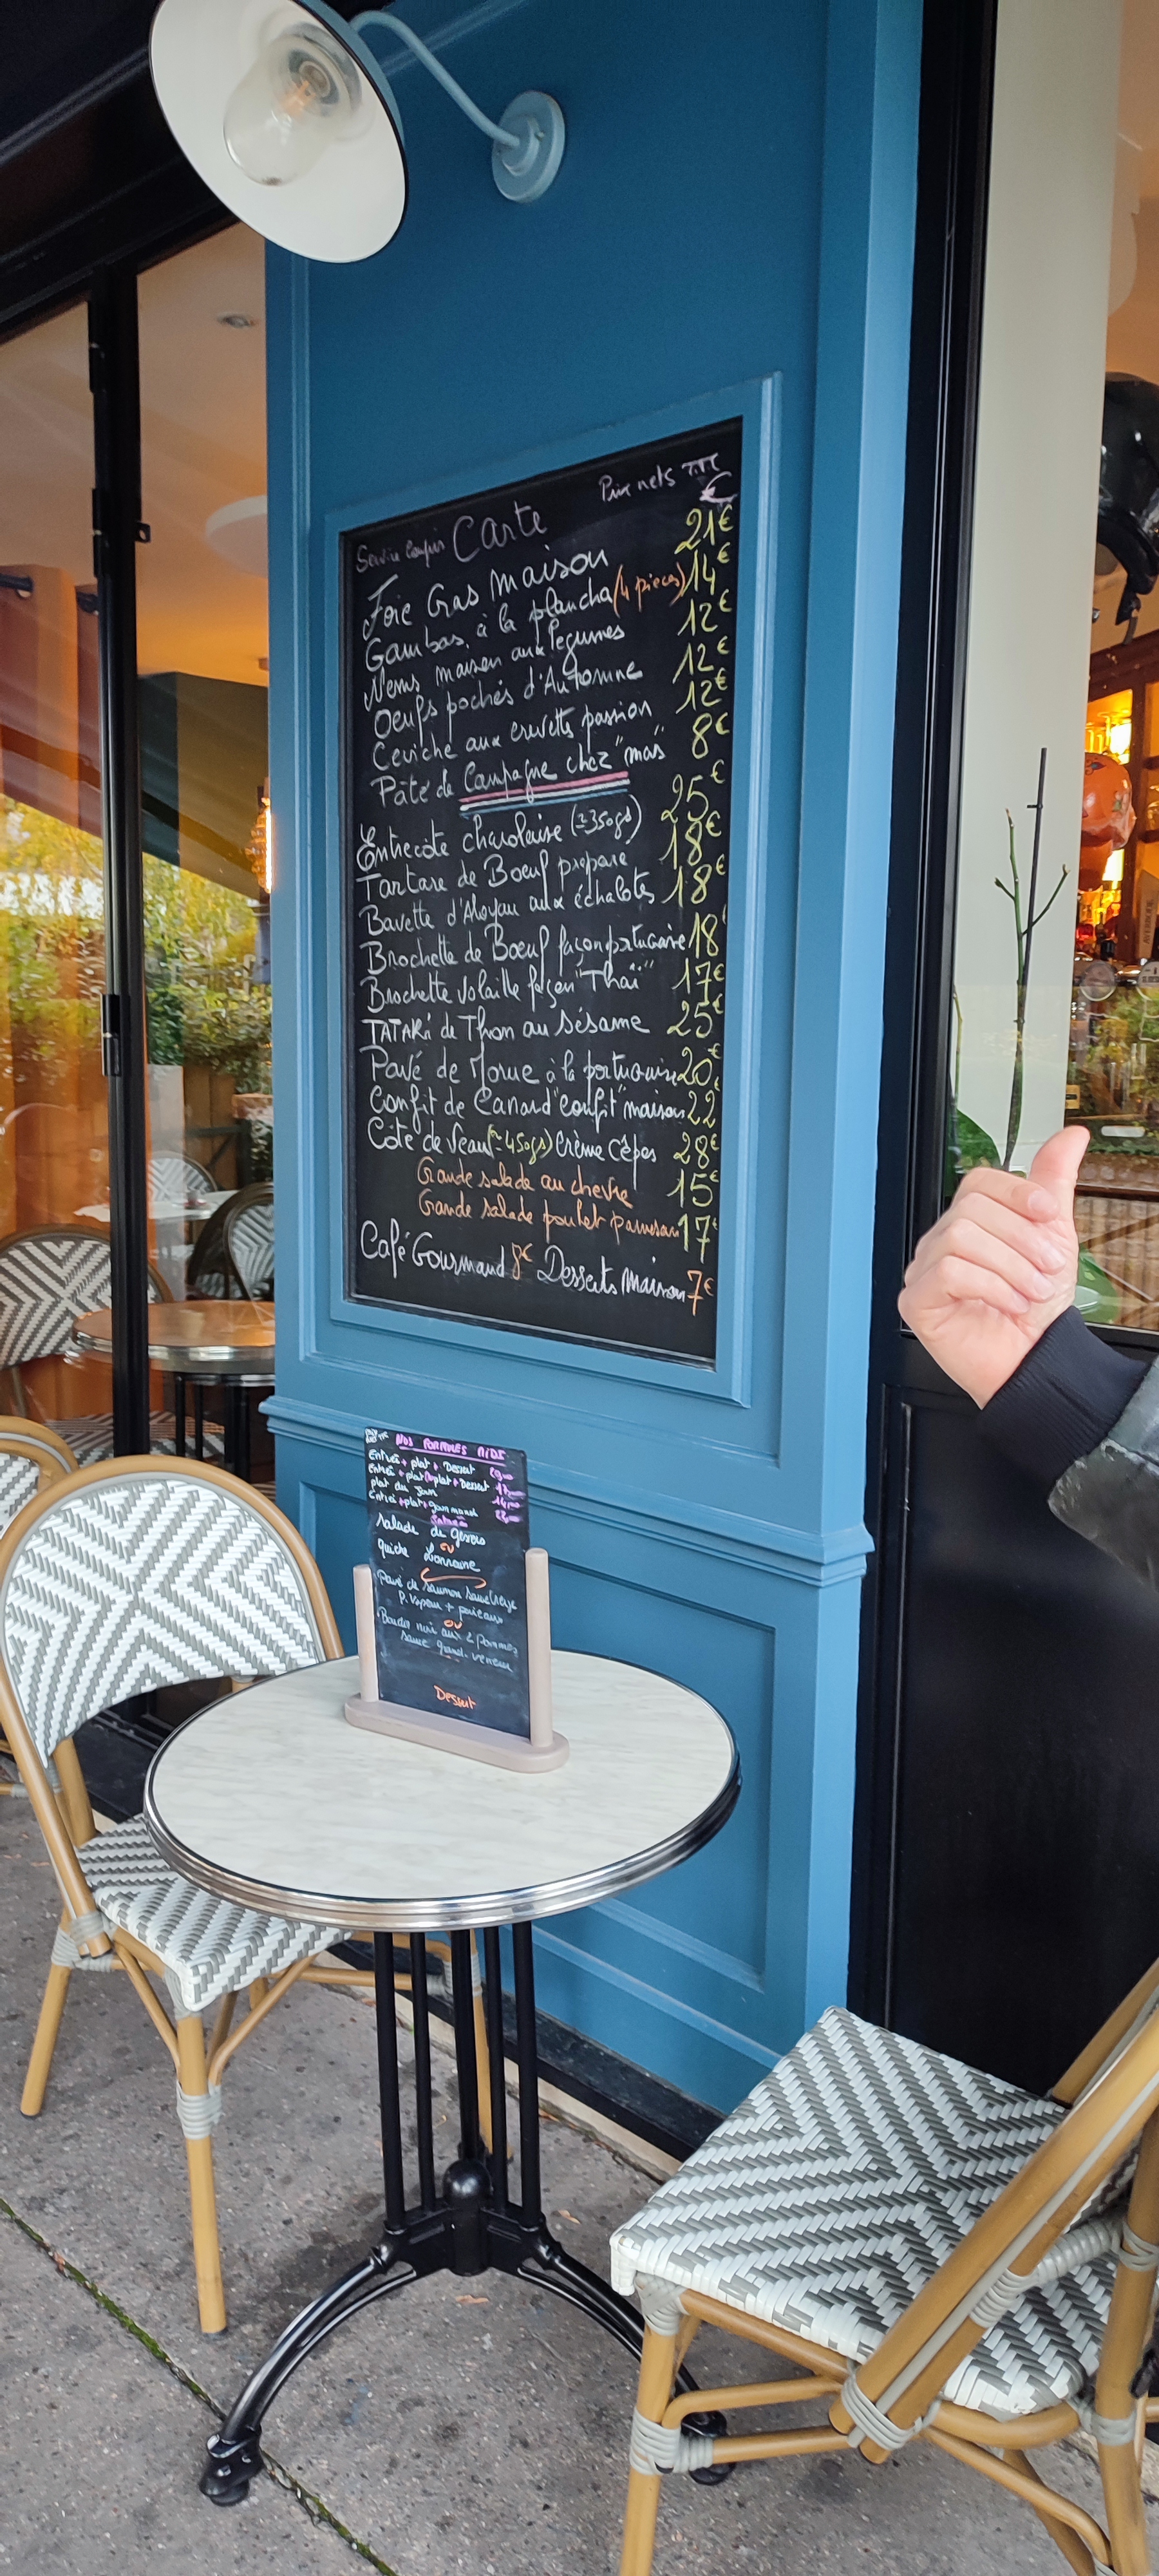 Prix nets TTC
€
Service compris Carte
Foie Gras maison 21€
Gambas à la plancha (4 pieces) 14€
Nems maison aux légumes 12€
Oeufs pochés d'Automne 12€
Ceviche aux crevettes passion 12€
Pâté de Campagne chez "mas" 8€
Entrecôte charolaise (≃350gs) 25€
Tartare de Boeuf préparé 18€
Bavette d'Aloyau aux échalotes 18€
Brochette de Boeuf façon portugaise 18€
Brochette Volaille façon "Thaï" 17€
TATAKi de Thon au Sésame 25€
Pavé de Morue à la portugaise 20€
Confit de Canard "confit" maison 22€
Côte de Veau (≃450gs) Crème Cèpes 28€
Grande salade au chèvre 15€
Grande salade poulet parmesan 17€
Café Gourmand 8€ Desserts Maison 7€
NOS FORMULES MIDI
Entrée + plat + Dessert
Entrée + plat / plat + Dessert
plat du jour
Entrée + plat + gourmand
Entrée
Salade de gésiers
ou
quiche Lorraine
Pavé de saumon sauce
P. Vapeur + poireaux
ou
Boudin noir aux 2 pommes
sauce grand veneur
Dessert